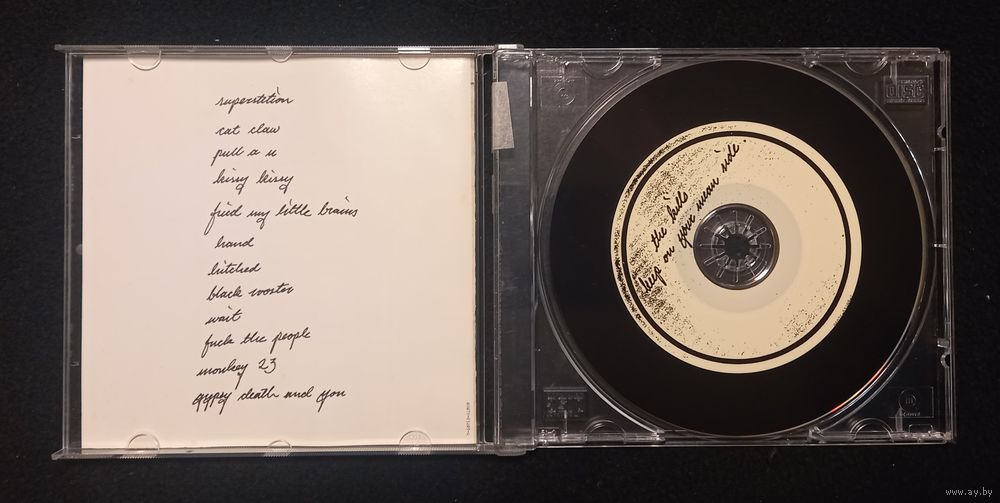 superstition
cat claw
pull a u
kissy kissy
fried my little brains
hand
hitched
black rooster
wait
fuck the people
monkey 23
gypsy death and you
the kills
keep on your mean side.
DISC
www.ay.by